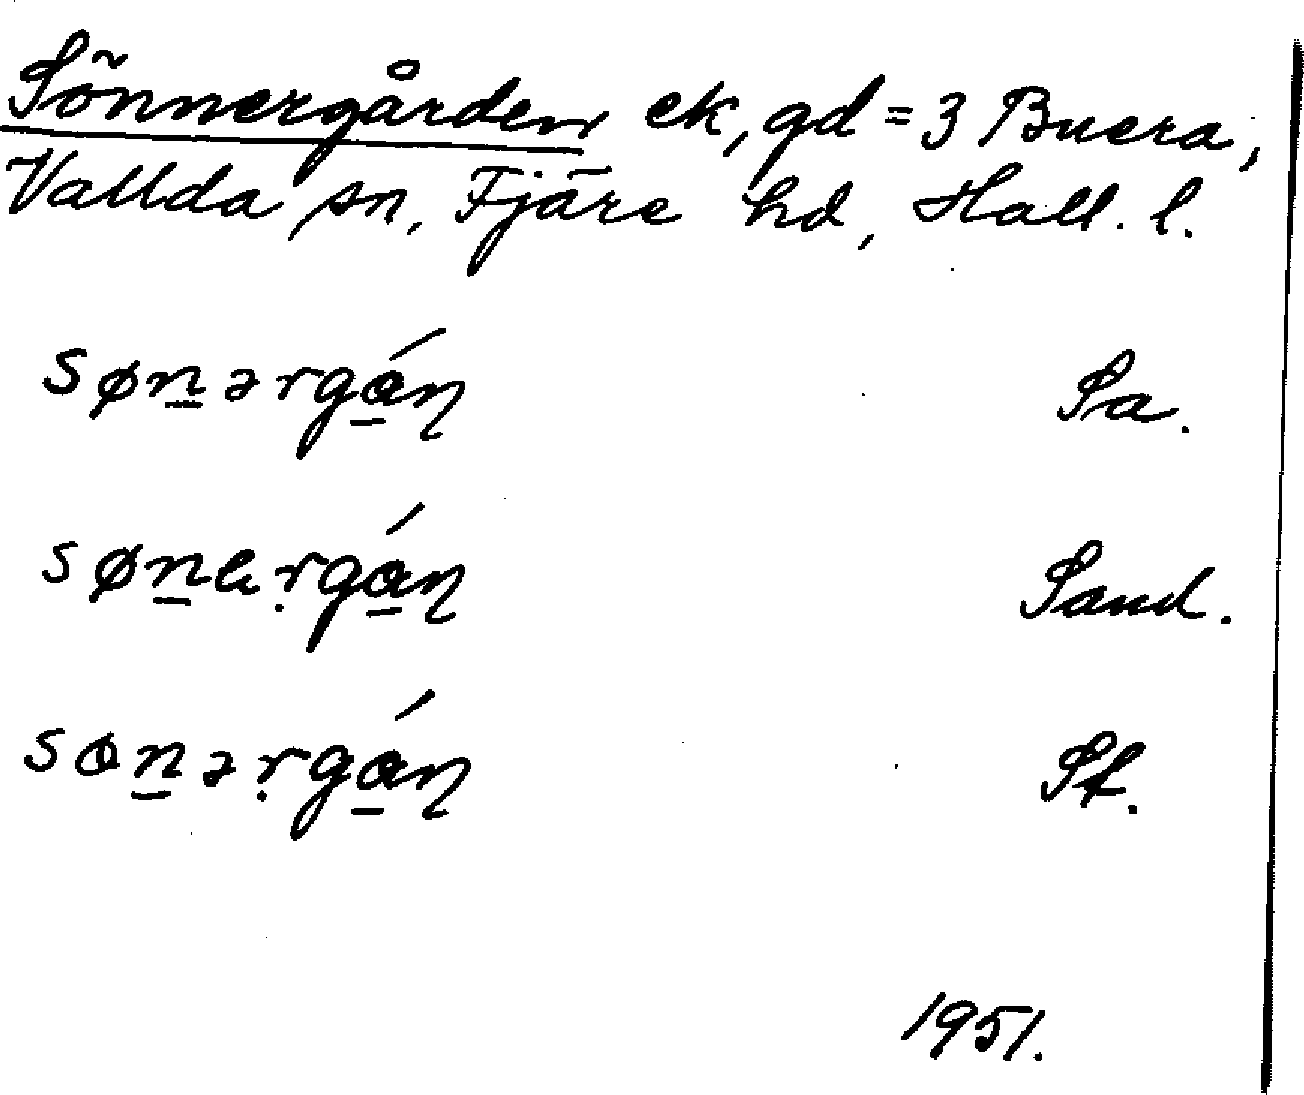 Sönnergården ek, gd = 3 Buera,
Vallda sn, Fjäre hd, Hall. l.
søn̲ərgá̲ɳ Sa.
søn̲eṛgá̲ɳ Sand.
sɵn̲əṛgá̲ɳ St.
1951.